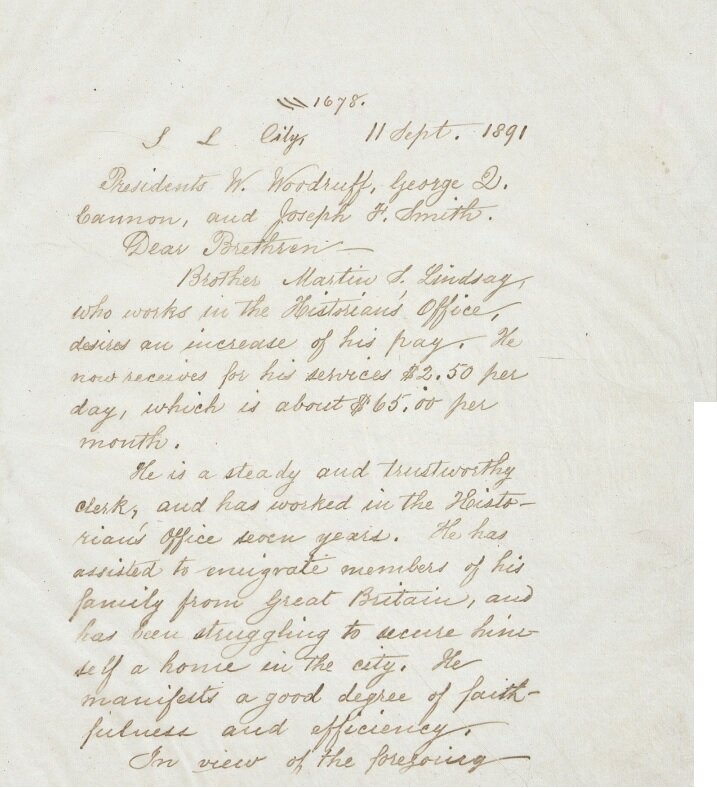 1678.
S L City, 11 Sept. 1891
Presidents W. Woodruff, George Q.
Cannon, and Joseph F. Smith.
Dear Brethren—
Brother Martin S. Lindsay,
who works in the Historian's Office,
desires an increase of his pay. He
now receives for his services $2.50 per
day, which is about $65.00 per
month.
He is a steady and trustworthy
clerk, and has worked in the Histo-
rian's Office seven years. He has
assisted to emigrate members of his
family from Great Britain, and
has been struggling to secure him-
self a home in the city. He
manifests a good degree of faith-
fulness and efficiency.
In view of the foregoing